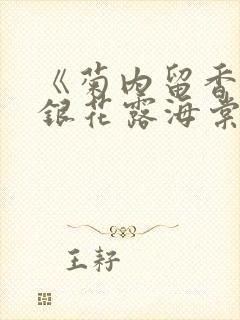 《菊内留香
银花露海棠
王耔